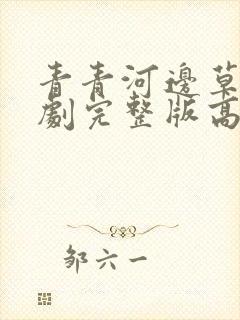 青青河邊草
劇完整版高
邹六一